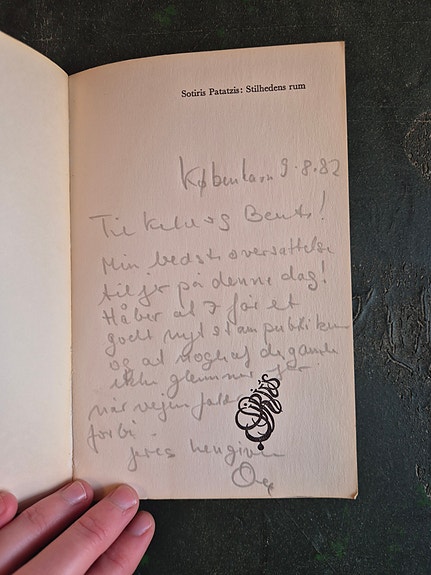 Sotiris Patatzis: Stilhedens rum
København 9.8.82
Til og Bente!
Min bedste oversættelse
til jer på denne dag!
Håber at I får et
godt nyt stampublikum
og at nogle af de gamle
ikke glemmer jer
når vejen falder
forbi
jeres hengivne